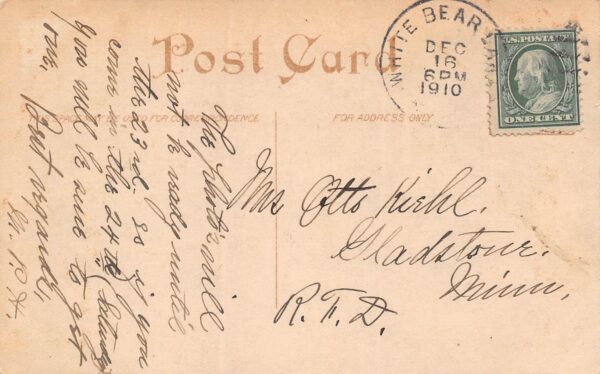 Post Card
WHITE BEAR
DEC
16
6 PM
1910
U.S. POSTAGE
ONE CENT
SPACE MAY BE USED FOR CORRESPONDENCE
FOR ADDRESS ONLY
The photos will
not be ready until
the 23rd. so if you
come in the 24th Saturday
you will be sure to get
me. Best regards,
Mrs Otto Kiehl.
Gladstone.
Minn.
R.F.D.